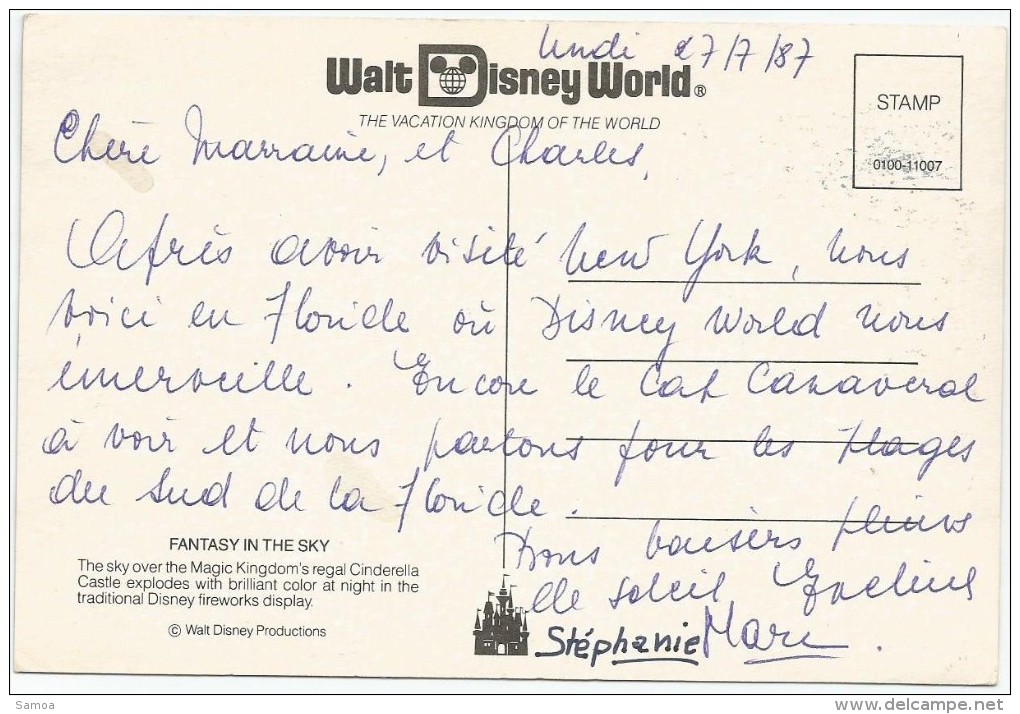 lundi 27/7/87
Walt Disney World®
THE VACATION KINGDOM OF THE WORLD
STAMP
0100-11007
Chère Marraine, et Charles,
Après avoir visité New York, nous
voici en Floride où Disney World nous
émerveille. Encore le Cap Canaveral
à voir et nous partons pour les plages
du Sud de la Floride.
Bons baisers pleins
de soleil Eveline
Stéphanie Marc.
FANTASY IN THE SKY
The sky over the Magic Kingdom's regal Cinderella
Castle explodes with brilliant color at night in the
traditional Disney fireworks display.
© Walt Disney Productions
Samoa
www.delcampe.net